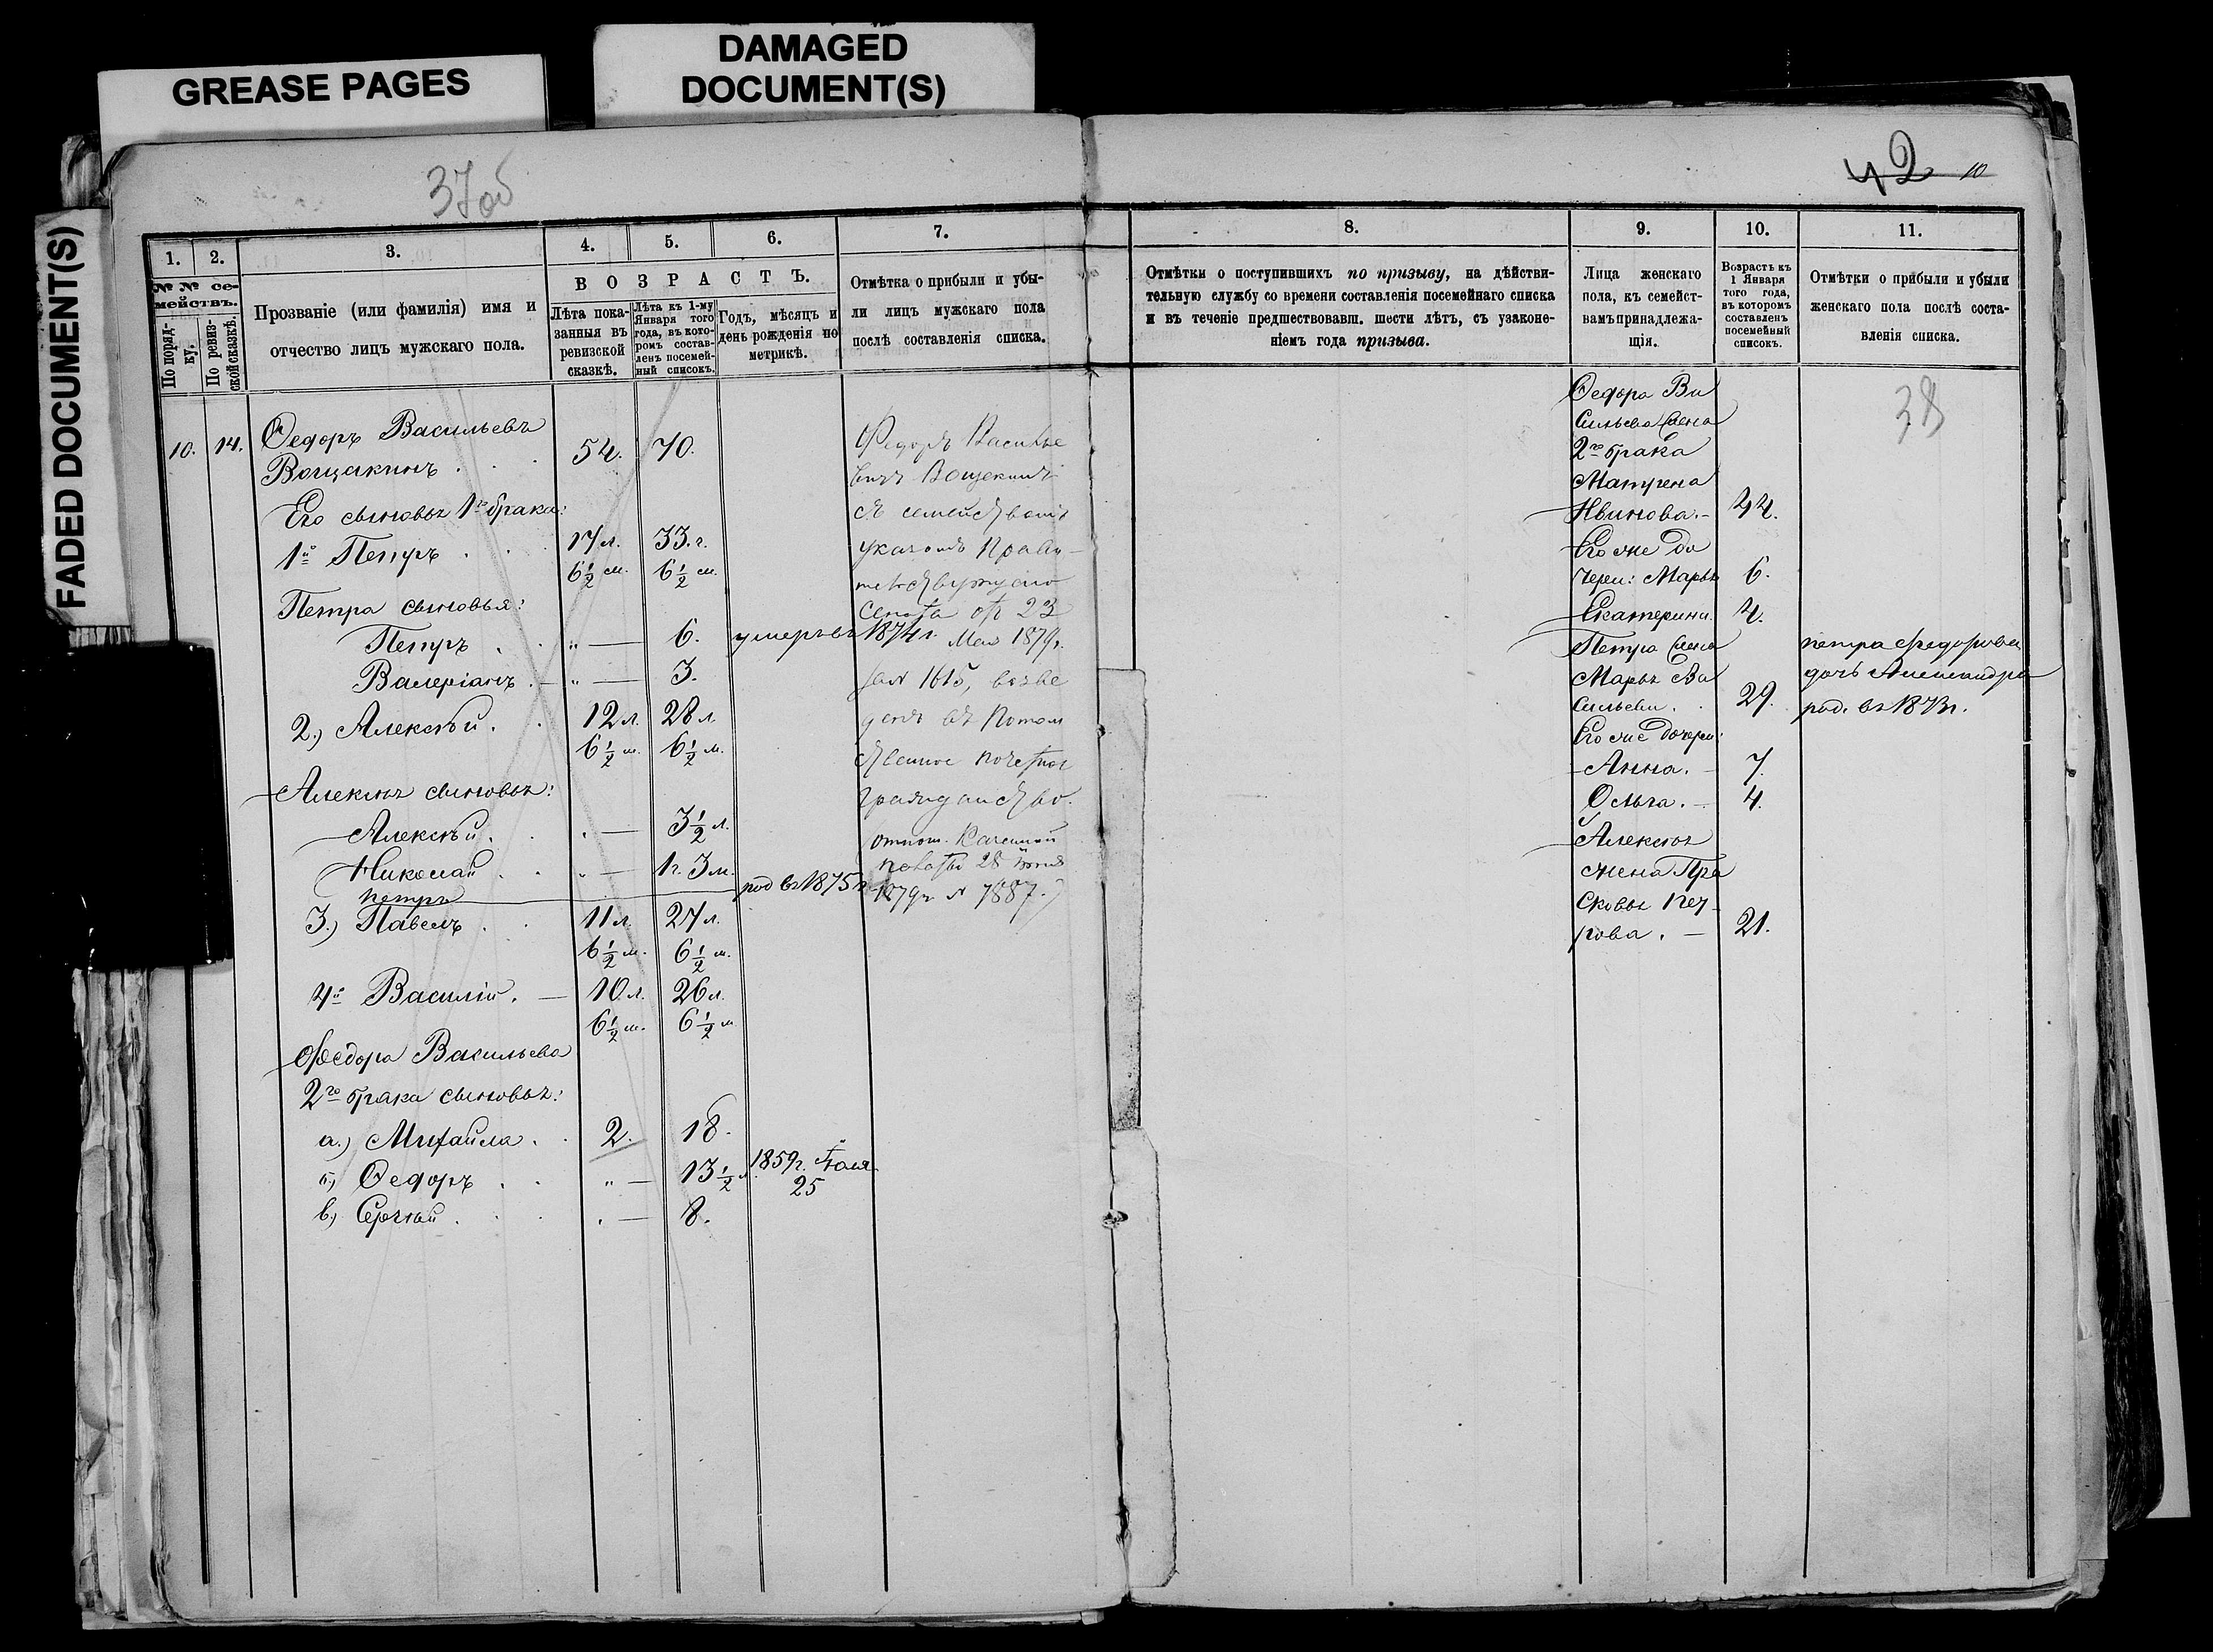 GREASE PAGES
DAMAGED
DOCUMENT(S)
FADED DOCUMENT(S)
37об
42 10
1. 2. 3. 4. 5. 6. 7.
№ № се-
мействъ.
По поряд-
ку.
По ревиз-
ской сказкѣ.
Прозваніе (или фамилія) имя и
отчество лицъ мужскаго пола.
ВОЗРАСТЪ.
Лѣта пока-
занныя въ
ревизской
сказкѣ.
Лѣта къ 1-му
Января того
года, въ кото-
ромъ состав-
ленъ посемей-
ный списокъ.
Годъ, мѣсяцъ и
день рожденія по
метрикѣ.
Отмѣтка о прибыли и убы-
ли лицъ мужскаго пола
послѣ составленія списка.
10. 14. Ѳедоръ Васильевъ
Вощакинъ . . . 54. 70.
Его сыновья 1го брака:
1й Петръ . . . 17 л. 33. г.
6½ м. 6½ м.
Петра сыновья:
Петръ . . „ — 6. умеръ въ 1874 г.
Валеріанъ . — „ — 3.
2.) Алексѣй . . 12 л. 28 л.
6½ м. 6½ м.
Алексѣя сыновья:
Алексѣй . . . — 3½ л.
Николай . . „ — 1 г. 3 м.
Петръ — род въ 1875 г.
3.) Павелъ . . 11 л. 27 л.
6½ м. 6½ м.
4й Василій . — 10 л. 26 л.
6½ м. 6½ м.
Ѳедора Васильева
2го брака сыновья:
а.) Михайла . . 2. 18.
б.) Ѳедоръ . . „ — 13½ л. 1859 г. Іюля
25
в.) Сергѣй . . . . — 8.
Федоръ Василье
вичъ Вощекинъ
съ семействомъ
указомъ Прави-
тельствующаго
Сената отъ 23
Мая 1879 г.
за № 1615, возве
денъ въ Потом
ственное почетное
гражданство.
отнош. Казенной
Палаты 28 Іюня
1879 г. № 7887.
8. 9. 10. 11.
Отмѣтки о поступившихъ по призыву, на дѣйстви-
тельную службу со времени составленія посемейнаго списка
и въ теченіе предшествовавш. шести лѣтъ, съ узаконе-
ніемъ года призыва.
Лица женскаго
пола, къ семейст-
вамъ принадлежа-
щія.
Возрастъ къ
1 Января
того года,
въ которомъ
составленъ
посемейный
списокъ.
Отмѣтки о прибыли и убыли
женскаго пола послѣ соста-
вленія списка.
38
Ѳедора Ва
сильева жена
2го брака
Матрена
Иванова. — 44.
Его же до
чери: Марья 6.
Екатерина. 4.
Петра жена
Марья Ва
сильева . . 29.
Его же дочери:
Анна. — 7.
Ольга. — 4.
Алексѣя
жена Пра
сковья Пет
рова . — 21.
Петра Федорова
дочь Александра
род. въ 1873 г.